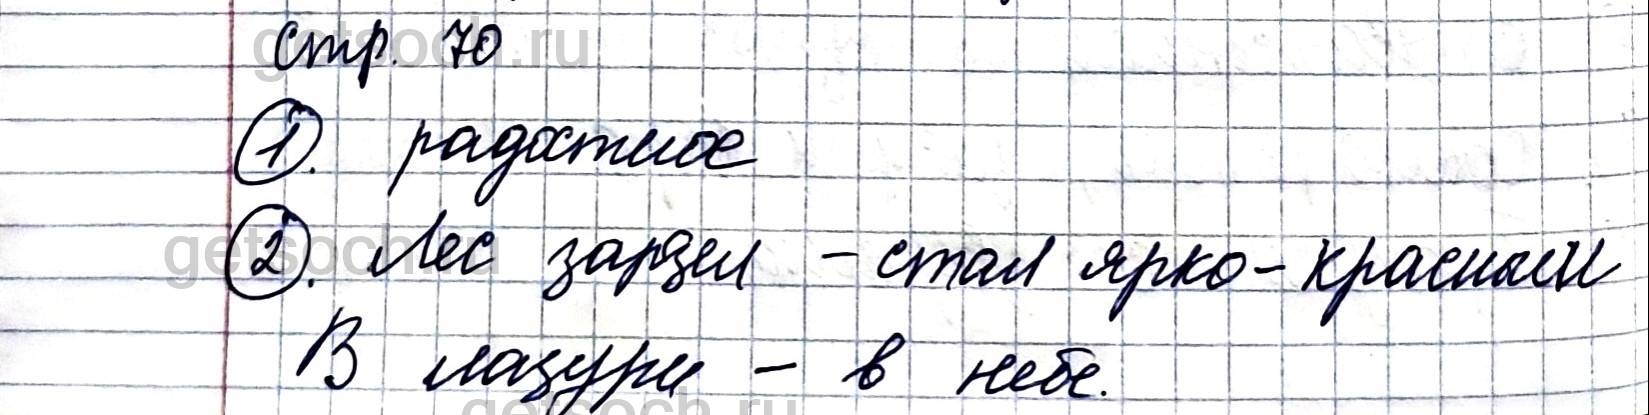 стр. 70
1. радостное
2. Лес зардел - стал ярко-красный
В лазури - в небе.
getsoch.ru
getsoch.ru
getsoch.ru